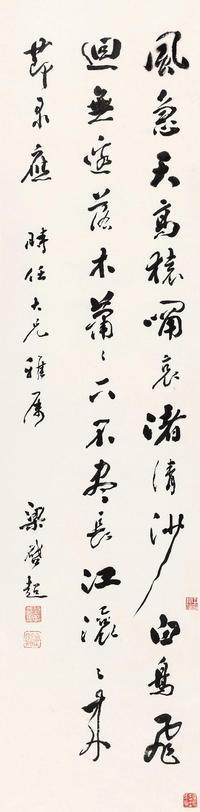 風急天高猿嘯哀渚清沙白鳥飛
迴無邊落木蕭〻下不盡長江滾〻來
節录應
時任大兄雅属
梁啓超